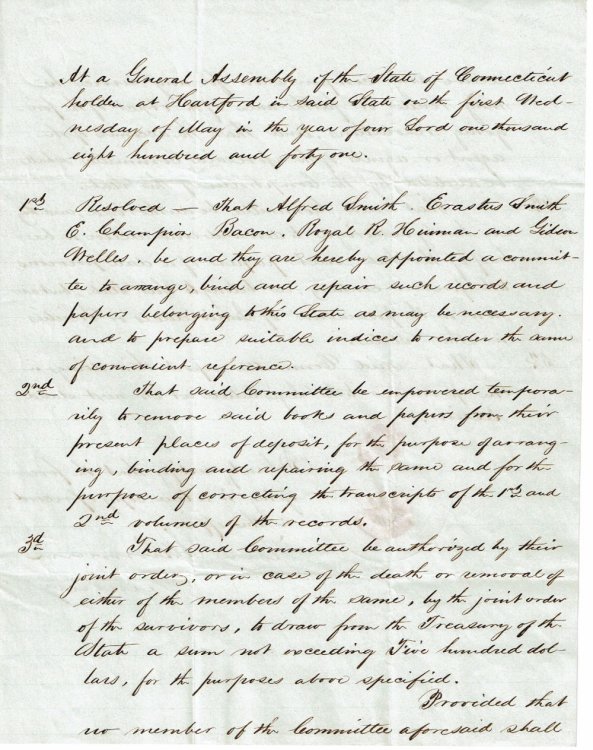 At a General Assembly of the State of Connecticut
holden at Hartford in said State on the first Wed-
nesday of May in the year of our Lord one thousand
eight hundred and forty one.
1st Resolved — That Alfred Smith. Erastus Smith
E. Champion Bacon. Royal R. Hinman and Gideon
Welles. be and they are hereby appointed a commit-
tee to arrange, bind and repair such records and
papers belonging to this State as may be necessary.
and to prepare suitable indices to render the same
of convenient reference.
2nd That said Committee be empowered tempora-
rily to remove said books and papers from their
present places of deposit, for the purpose of arrang-
ing, binding and repairing the same and for the
purpose of correcting the transcripts of the 1st and
2nd volumes of the records.
3d That said Committee be authorized by their
joint order, or in case of the death or removal of
either of the members of the same, by the joint order
of the survivors, to draw from the Treasury of the
State a sum not exceeding Five hundred dol-
lars, for the purposes above specified.
Provided that
no member of the Committee aforesaid shall